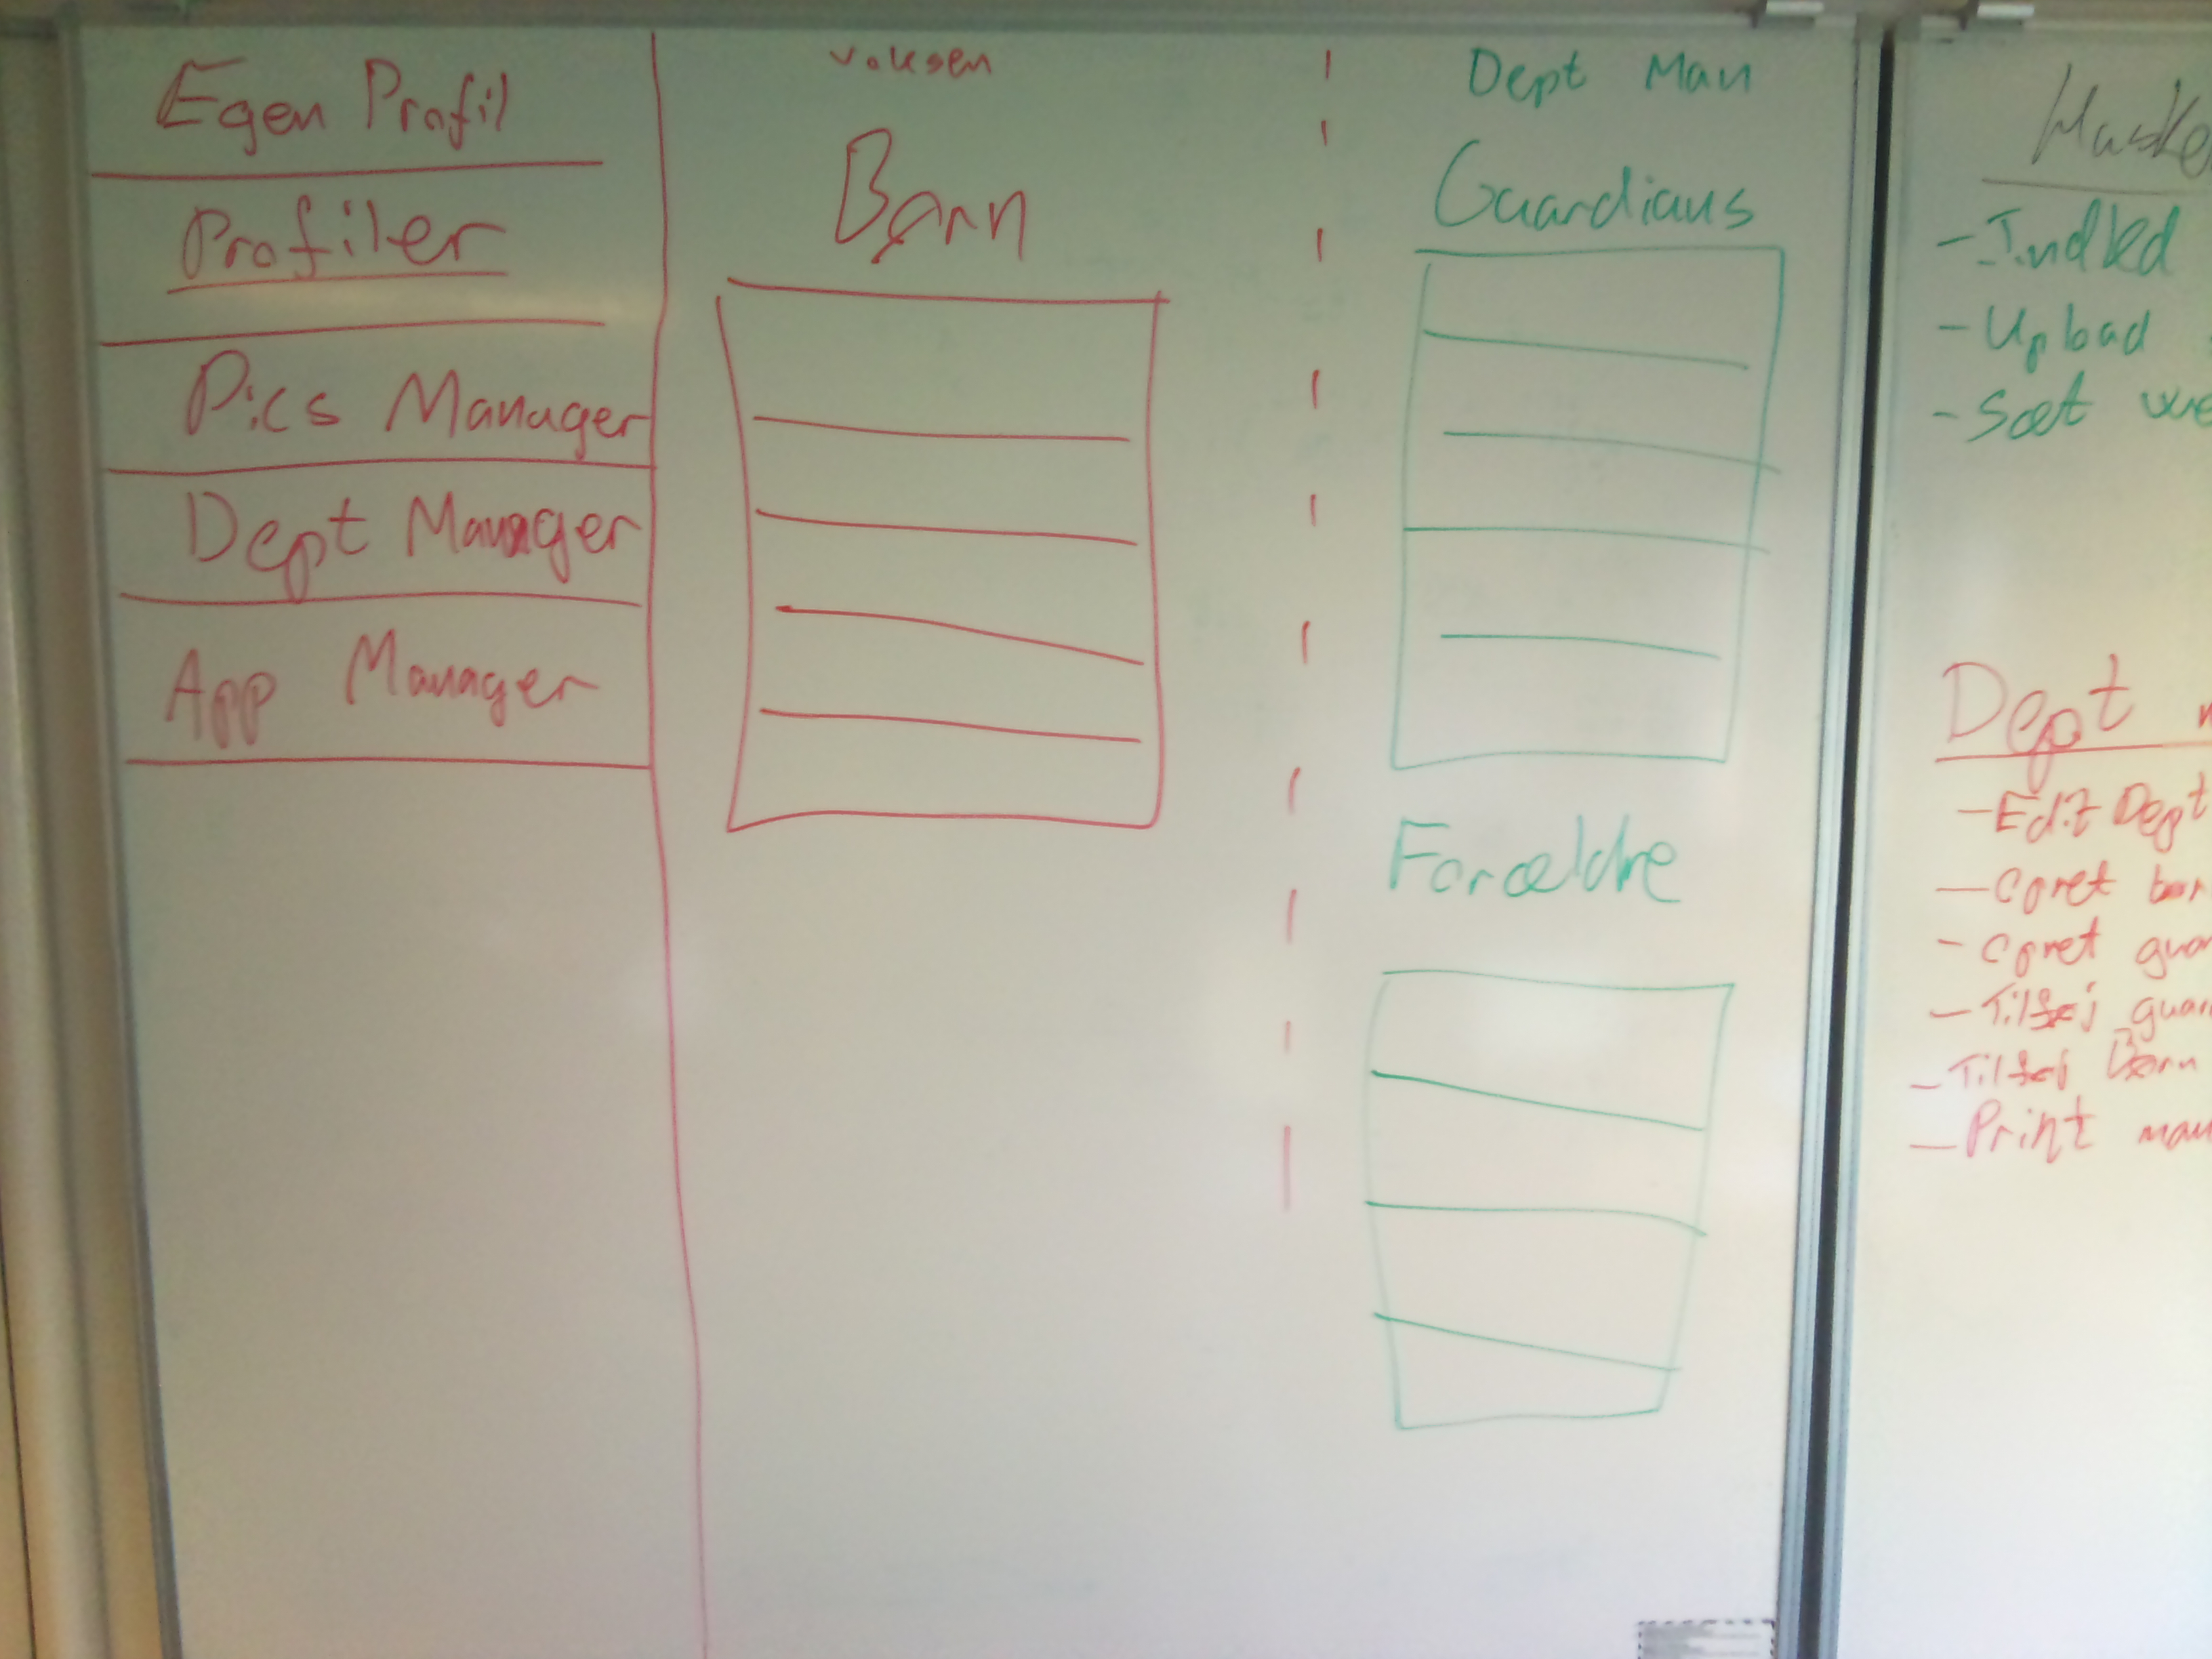 Egen Profil
Profiler
Pics Manager
Dept Manager
App Manager
Voksen
Børn
Dept Man
Guardians
Forældre
- Indled
- Upload
- Sæt
Dept
- Edit Dept
- Opret
- Opret
- Tilføj
- Tilføj Børn
- Print